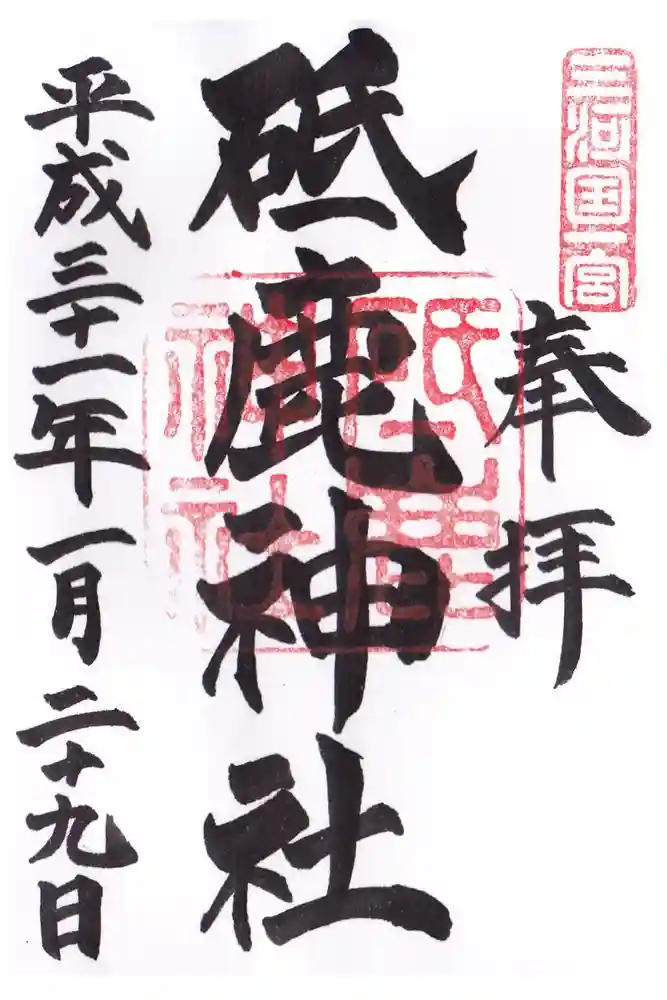 三河国一宮
奉拝
砥鹿神社
砥鹿神社
平成三十一年一月二十九日